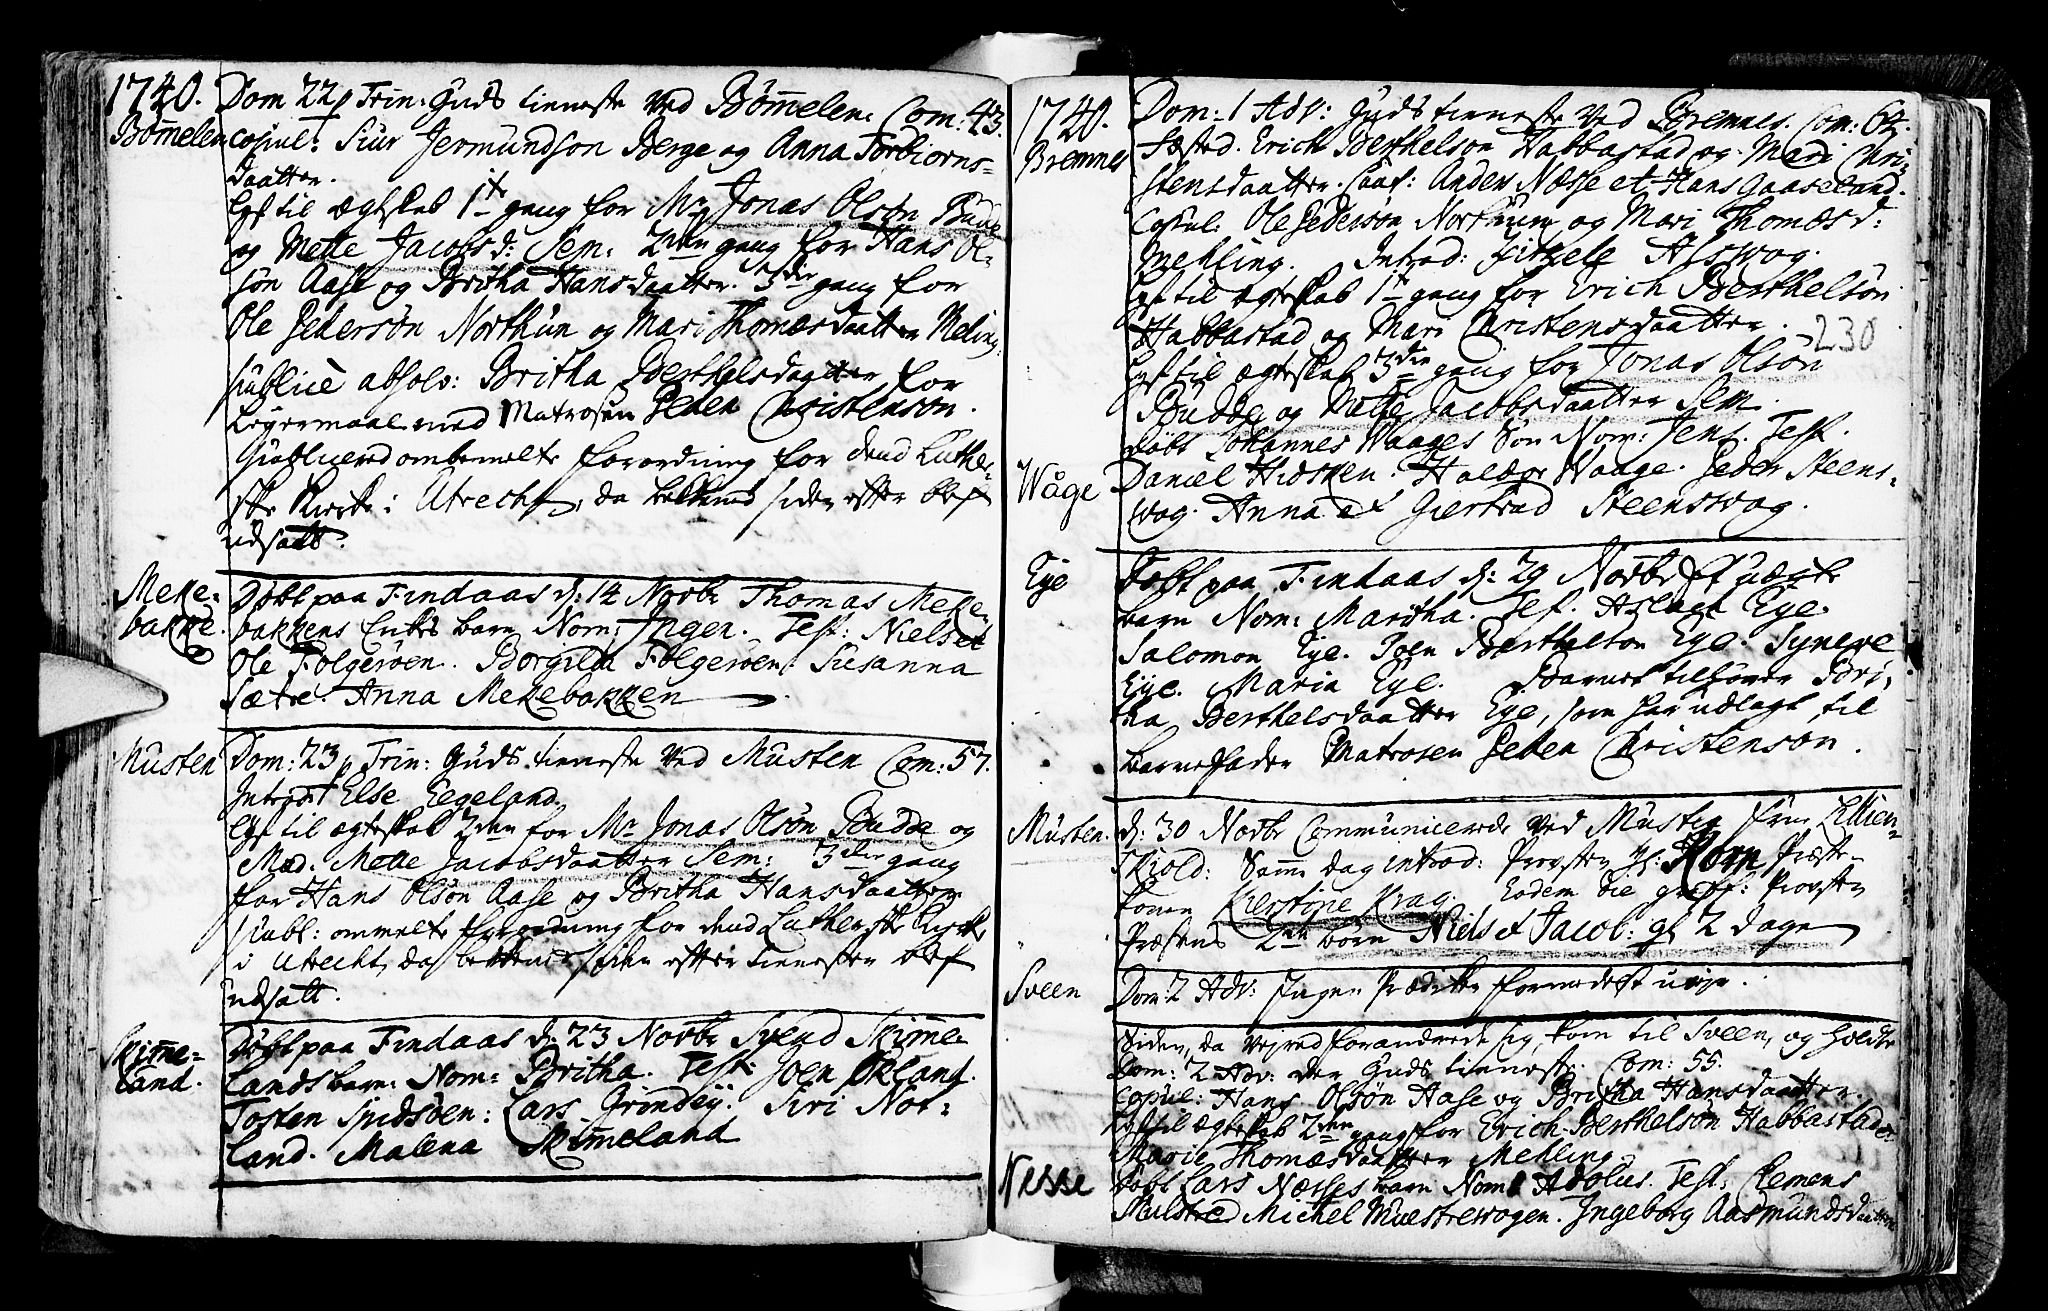 1740.
Bømelen
Dom 22 p Trin: Guds tienneste ved Bømelen Com: 43.
copul: Siur Jermundson Berge og Anna Torbiorns-
daatter.
Lyst til ægteskab 1te gang for Mr Jonas Olsøn Budde
og Mette Jacobsd: Sem: 2den gang for Hans Ol-
søn Aase og Britha Hansdaatter. 3die gang for
Ole Pedersøn Northun og Mari Thomæsdaatter Meling.
Publicè absolv: Britha Berthelsdaatter for
Leyermaal med Matrosen Peder Christenson.
Publicered ombemelte forordning for dend Luther-
ske Kirke i Utrecht, da siden efter blef
udsatt.
Meke-
bakke.
Døbt paa Findaas d: 14 Novbr Thomas Meke-
bakkens barn Nom: Inger. Test: Niels et
Ole Folgerøen. Borgilda Folgerøen. Susanna
Sætre. Anna Mekebakken
Musten
Dom: 23 p Trin: Guds tienneste ved Musten Com: 57.
Introd: Else Eegeland.
Lyst til ægteskab 2den for Mr Jonas Olsøn Budde og
Mad. Mette Jacobsdaatter Sem: 3die gang
for Hans Olsøn Aase og Britha Hansdaatter
Publ: ommelte forordning for dend Lutherske Kirke
i Utrecht, da siden efter tiennesten blef
udsatt.
Skime-
land.
Døbt paa Findaas d: 23 Novbr Svend Skime-
lands barn: Nom: Britha. Test: Joen Økland.
Tosten Spidsøen: Lars Grindey: Siri Nor-
land. Malena Skimeland
1740.
Bremnes
Dom: 1 Adv: Guds tienneste ved Bremnes. Com: 64.
Fæsted. Erich Berthelson Habbastad og Mari Chri-
stensdaatter. Cauf: Anders Næsse et Hans Gaaseland.
Copul: Ole Pedersøn Northun og Mari Thomæsd:
Mehling. Introd: Sitzele Alswog.
Lyst til ægteskab 1te gang for Erich Berthelsøn
Habbastad og Mari Christensdaatter.
230
Lyst til ægteskab 3die gang for Jonas Olsøn
Budde og Mette Jacobsdaatter Sem.
Wåge
Døbt Johannes Waages Søn Nom: Jens. Test.
Daniel Hidsken. Haldor Waage. Peder Steens-
wog. Anna et Giertrud Steenswog.
Eye
Døbt paa Findaas d: 29 Novbr Et uægte
barn Nom: Martha. Test. Aslach Eye.
Salomon Eye. Joen Berthelson Eye. Synneve
Eye. Maria Eye. Barnet tilhører Bri-
tha Berthelsdaatter Eye, som har udlagt til
barnefader Matrosen Peder Christenson.
Musten.
d: 30 Novbr Communicerede ved Musten Frue Lillien-
skiold: Samme dag introd: Provsten Hr: Korn Præste-
konen Kierstine Krag. Eodem die Provsten
Præsens 2de børn Niels et Jacob: gl 2 dage
Sveen
Dom 2 Adv: Ingen Prædiken formedelst uveyr.
Siden, da Vejred forandrede sig, kom til Sveen, og holdte
Dom: 2 Adv: der Guds tienneste. Com: 55.
Copul: Hans Olsøn Aase og Britha Hansdaatter.
Lyst til ægteskab 2den gang for Erich Berthelsøn Habbastad
Marie Thomæsdaatter Mehling.
Nesse
Døbt Lars Næsses barn Nom: Adolus. Test: Clemens
Michel Mæstrewogen. Ingeborg Aasmundsdaatter